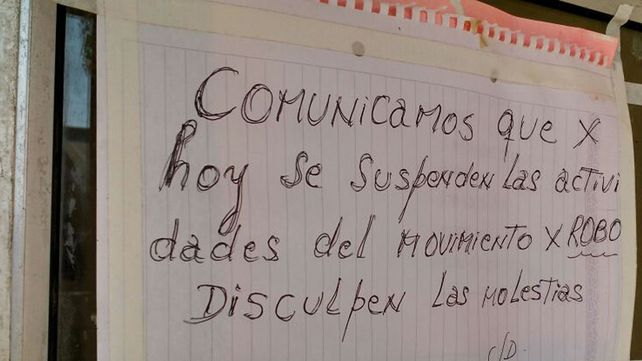 COMUNICAMOS que x
hoy se suspenden las activi
dades del movimiento x ROBO
DISCULPEN las molestias
C/D.